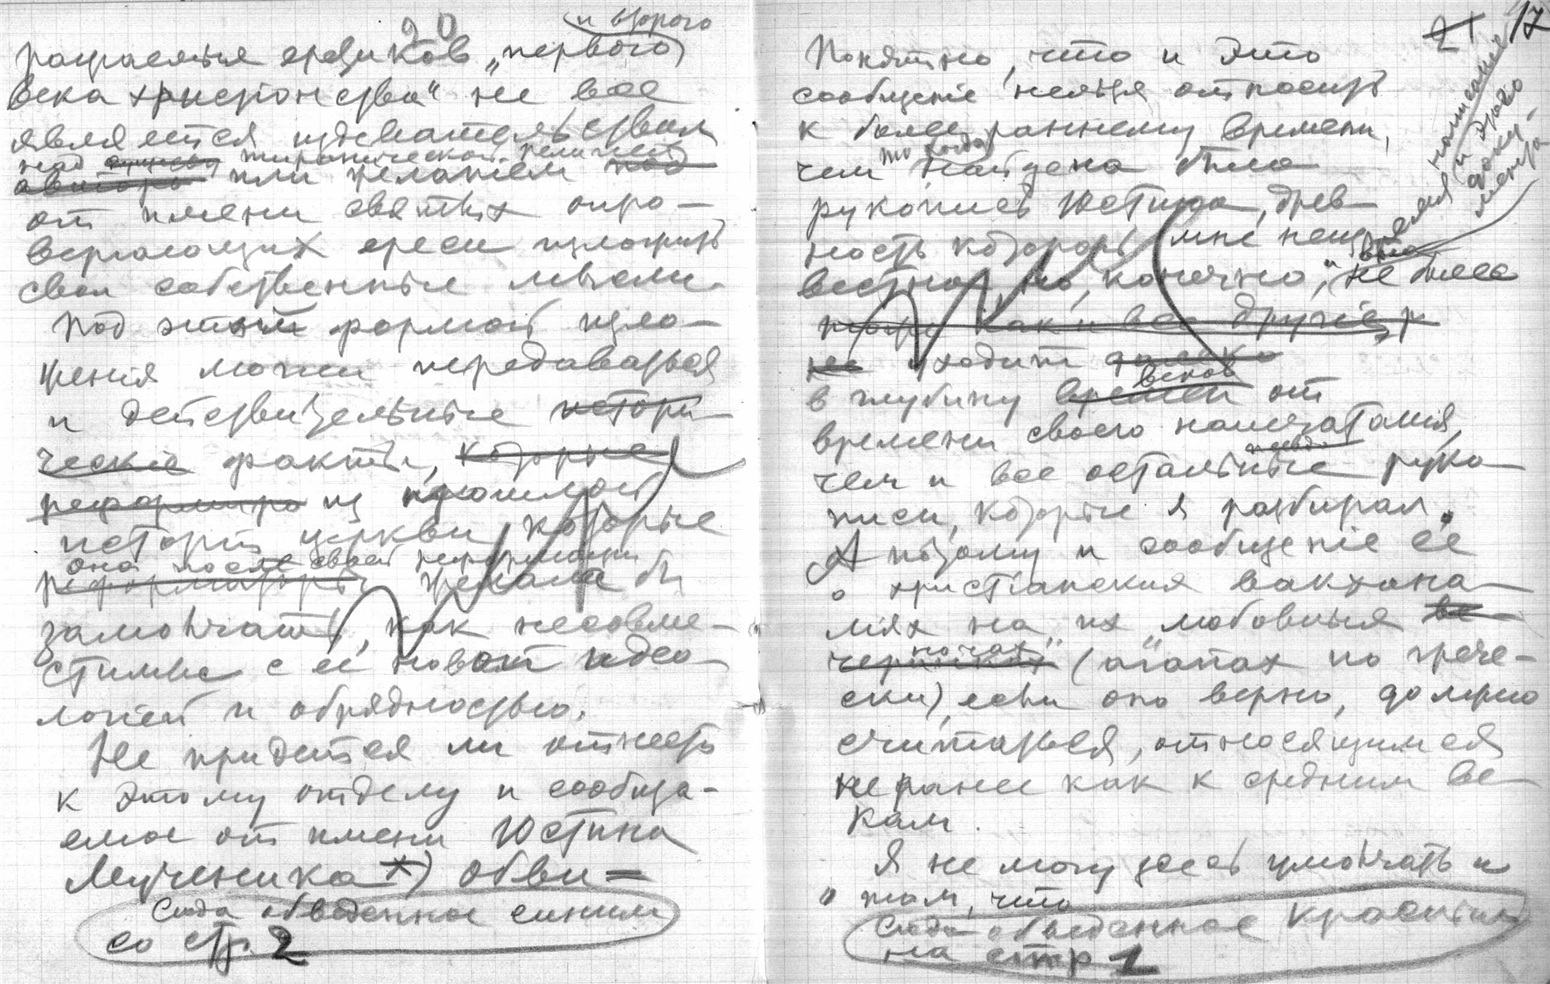 20
и второго
еретиков „первого
века христіонства“ не все
является издевательством
над тиранической религией
или желанием
от имени святых опро-
вергающих ереси изложить
свои собственные мысли.
Под этой формой изло-
жения могли передаваться
и действительные истори-
ческіе факты, которые
из прошлой
исторіи церкви которые
она после своей реформации
желала бы
замолчать, как несовме-
стимые с ее новой идео-
логіей и обрядностью.
Не придется ли отнести
к этому отделу и сообща-
емое от имени Юстина
Мученика *) обви=
Сюда обведенное синим
со стр. 2
21 17
Понятно, что и это
сообщеніе нельзя относить
к более раннему времени,
чем то когда найдена была
рукопись Юстина, древ-
ность которой мне неиз-
вестна, но, конечно, и не более
время написания и этого доку-
мента
как и все другіе
уходит далеко
в глубину времен веков от
времени своего напечатания,
чем и все остальные руко-
писи, которые я разбирал.
А потому и сообщеніе ее
о христіанских вакхана-
ліях на их „любовных
ночах“ (агапах по грече-
ски), если оно верно, должно
считаться, относящимся
не ранее как к средним ве-
кам.
Я не могу здесь умолчать и
о том, что
Сюда обведенное красным
на стр 1